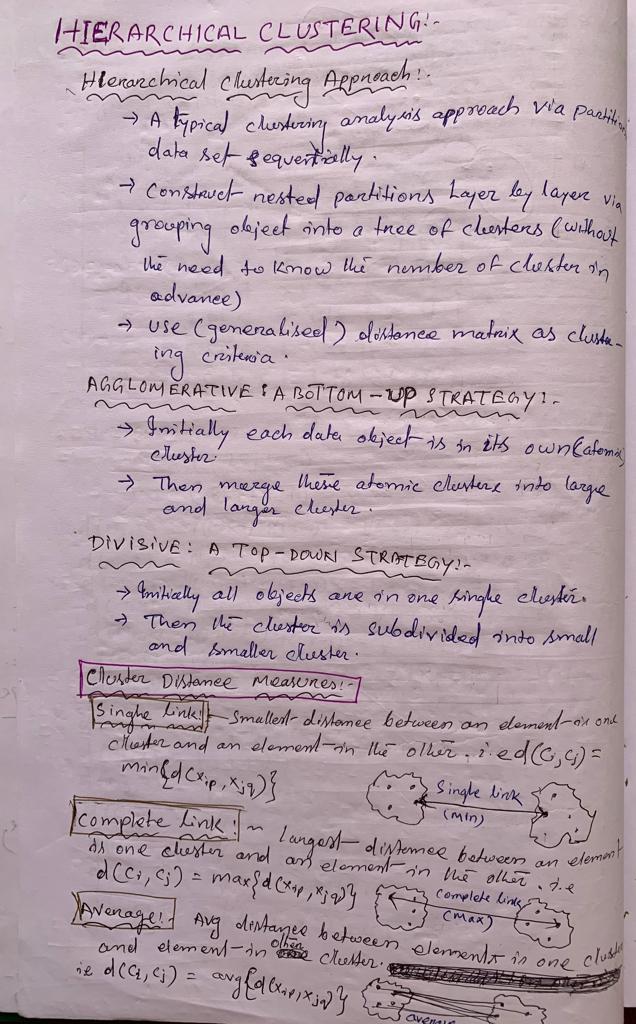 HIERARCHICAL CLUSTERING:-
Hierarchical Clustering Approach:-
→ A typical clustering analysis approach via partition
data set sequentially.
→ Construct nested partitions layer by layer via
grouping object into a tree of clusters (without
the need to know the number of cluster in
advance)
→ use (generalised) distance matrix as cluste-
ing criteria.
AGGLOMERATIVE : A BOTTOM-UP STRATEGY:-
→ Initially each data object is in its own (atomic)
cluster.
→ Then merge these atomic clusters into large
and larger cluster.
DIVISIVE: A TOP-DOWN STRATEGY:-
→ Initially all objects are in one single cluster.
→ Then the cluster is subdivided into small
and smaller cluster.
Cluster Distance Measures:-
Single link:- Smallest distance between an element in one
cluster and an element in the other. i.e d(Ci, Cj) =
min{d(xip, xjq)}
Single link
(MIN)
Complete Link:- Largest distance between an element
is one cluster and an element in the other. i.e
d(Ci, Cj) = max{d(xip, xjq)}
Complete link
(max)
Average:- Avg distance between elements is one cluster
and element in other cluster.
ie d(Ci, Cj) = avg{d(xip, xjq)}
average